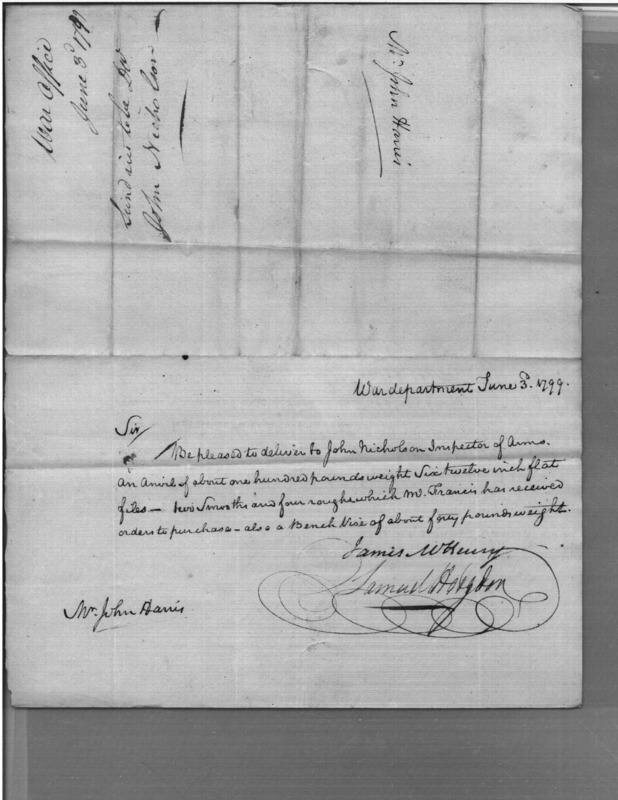 War Office
June 3d 1799
Sundries to be Dd
John Nicholson
Mr John Harris
War department June 3d. 1799.
Sir/
Be pleased to deliver to John Nicholson Inspector of Arms.
An Anvil of about one hundred pounds weight Six twelve inch flat
files — two Smooths and four roughs which Mr. Francis has received
orders to purchase — also a Bench Vise of about forty pounds weight.
James McHenry
Samuel Hodgdon
Mr. John Harris